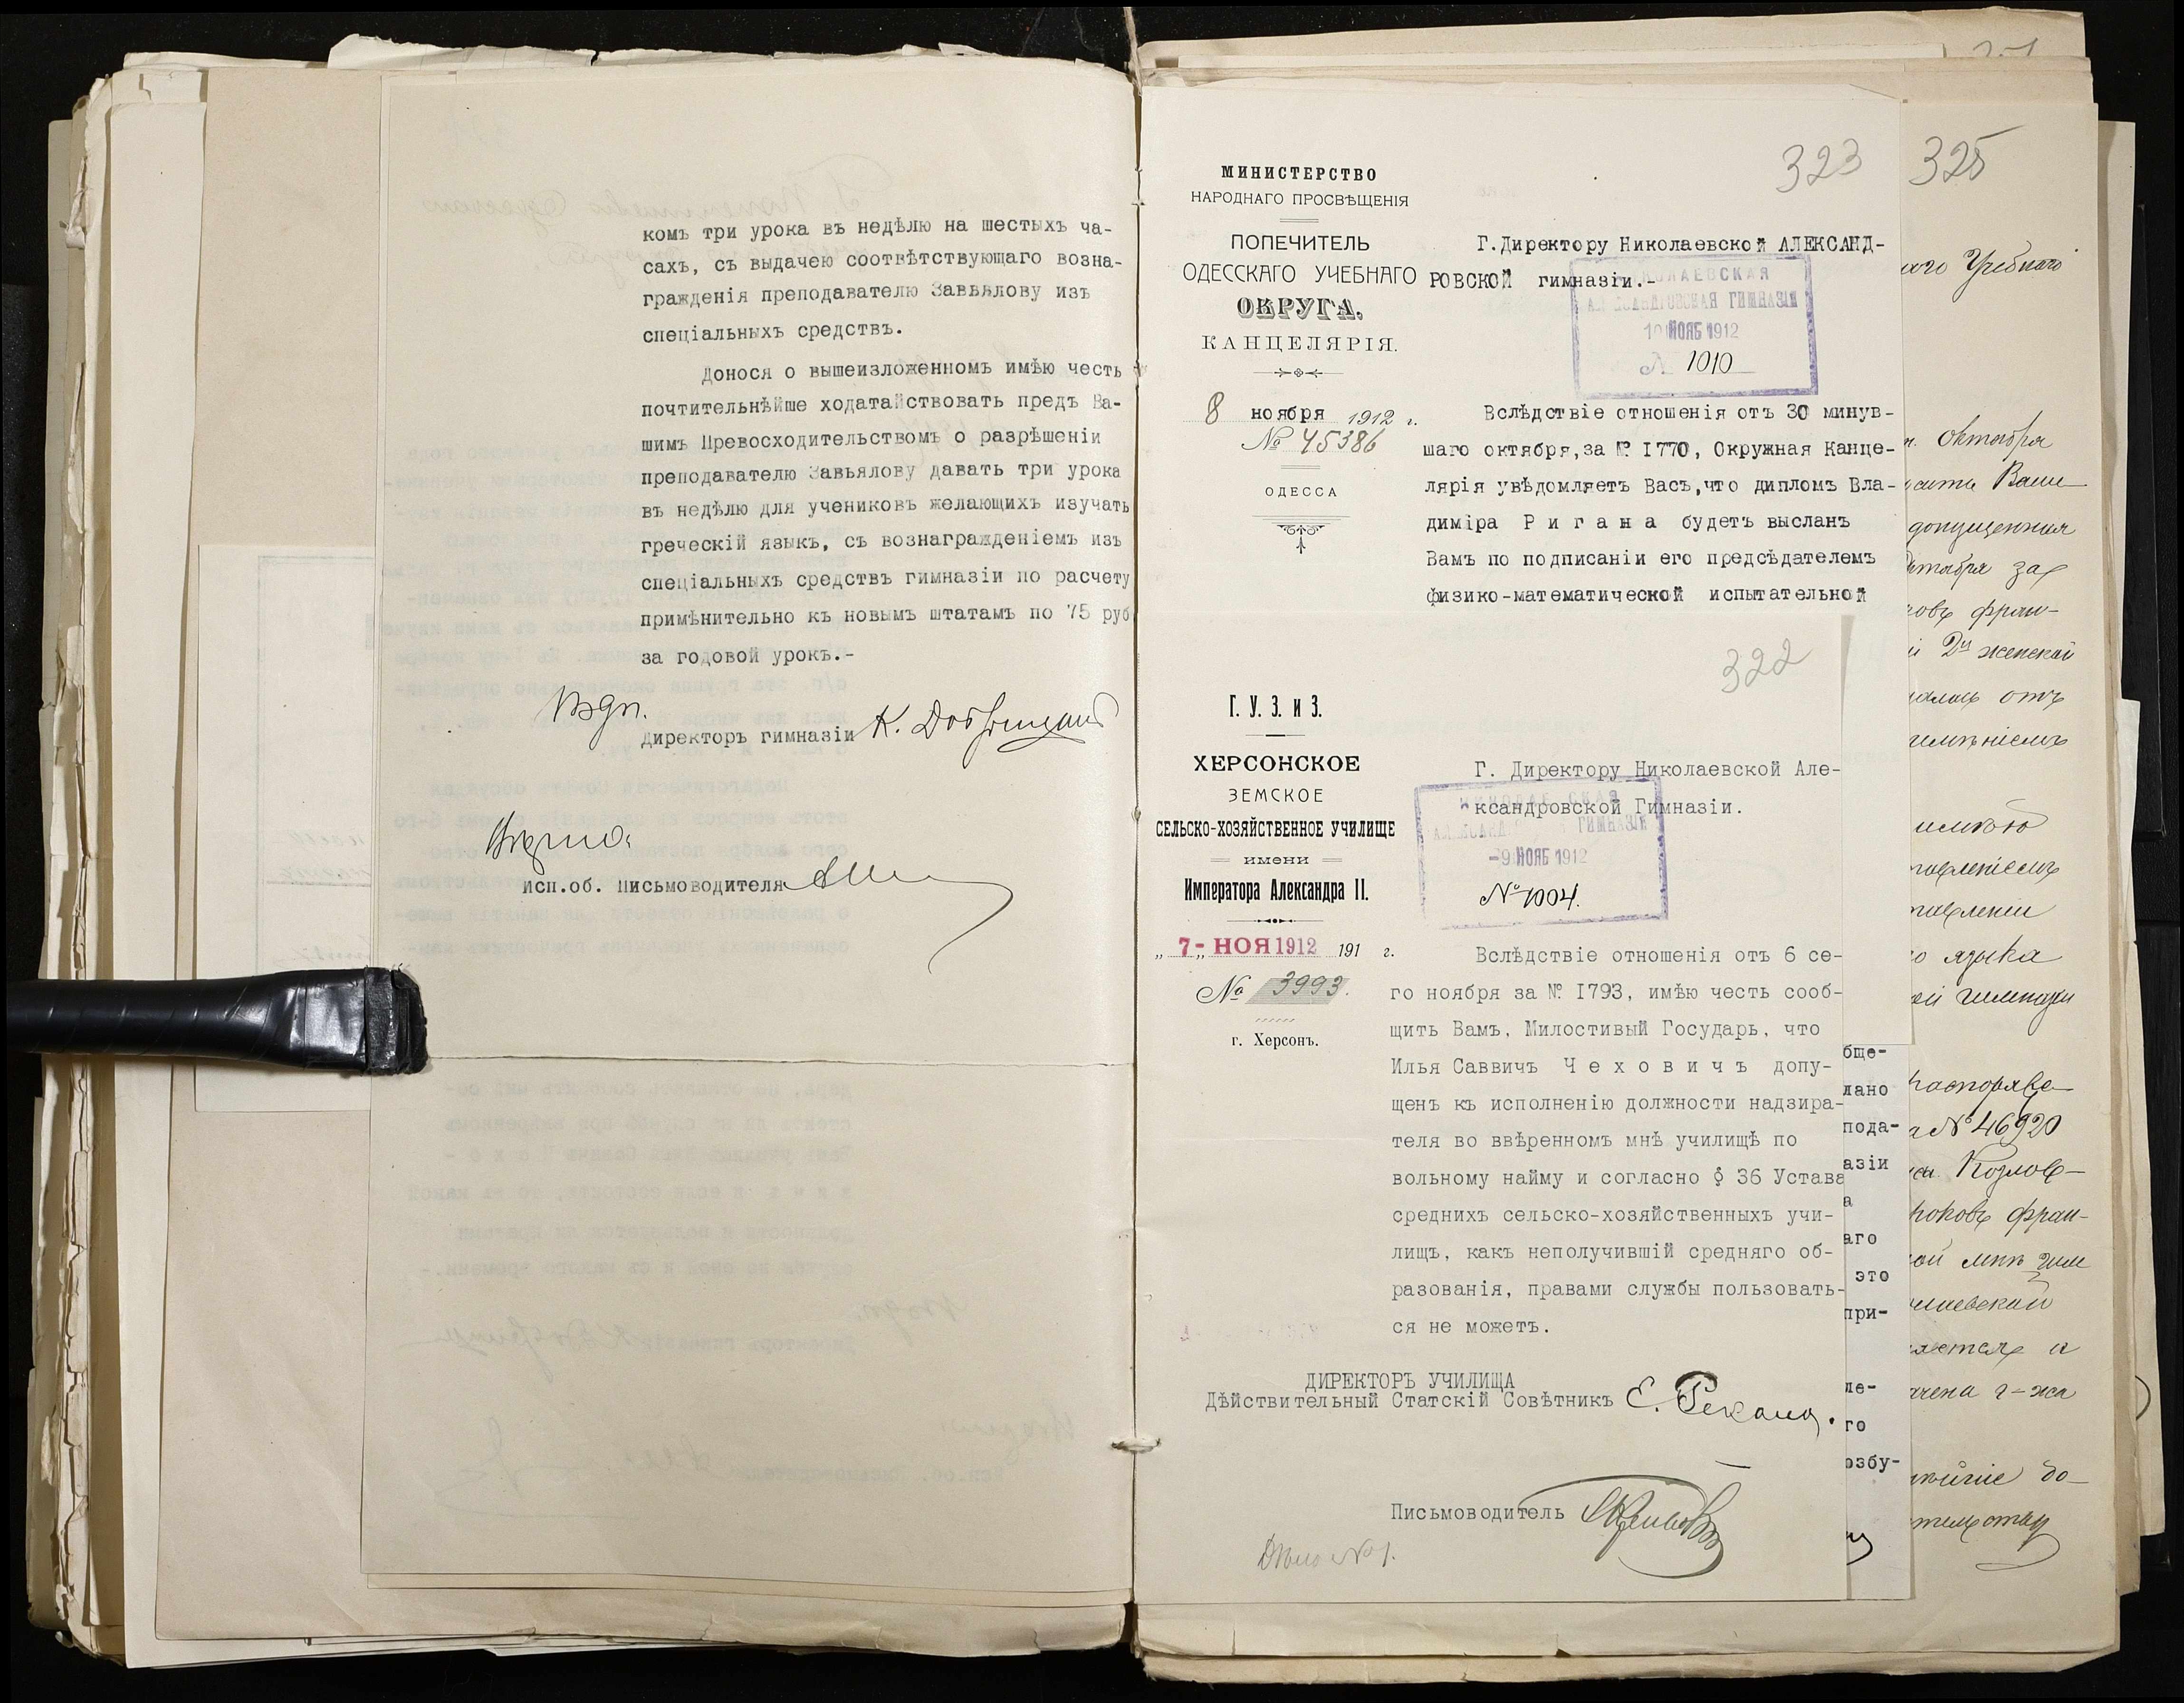 комъ три урока въ недѣлю на шестыхъ ча-
сахъ, съ выдачею соотвѣтствующаго возна-
гражденія преподавателю Завьялову изъ
спеціальныхъ средствъ.
Донося о вышеизложенномъ имѣю честь
почтительнѣйше ходатайствовать предъ Ва-
шимъ Превосходительствомъ о разрѣшеніи
преподавателю Завьялову давать три урока
въ недѣлю для учениковъ желающихъ изучать
греческій языкъ, съ вознагражденіемъ изъ
спеціальныхъ средствъ гимназіи по расчету
примѣнительно къ новымъ штатамъ по 75 руб
за годовой урокъ.-
Директоръ гимназіи
Вѣрно:
исп.об. Письмоводителя
323
МИНИСТЕРСТВО
НАРОДНАГО ПРОСВѢЩЕНІЯ
ПОПЕЧИТЕЛЬ
ОДЕССКАГО УЧЕБНАГО
ОКРУГА.
КАНЦЕЛЯРІЯ.
8 ноября 1912 г.
№ 45386
ОДЕССА
Г.Директору Николаевской АЛЕКСАНД-
РОВСКОЙ гимназіи.-
НИКОЛАЕВСКАЯ
АЛЕКСАНДРОВСКАЯ ГИМНАЗІЯ
10 НОЯБ 1912
№ 1010
Вслѣдствіе отношенія отъ 30 минув-
шаго октября,за № I770, Окружная Канце-
лярія увѣдомляетъ Васъ,что дипломъ Вла-
диміра Р и г а н а будетъ высланъ
Вамъ по подписаніи его предсѣдателемъ
физико-математической испытательной
322
Г. У. З. и З.
ХЕРСОНСКОЕ
ЗЕМСКОЕ
СЕЛЬСКО-ХОЗЯЙСТВЕННОЕ УЧИЛИЩЕ
имени
Императора Александра II.
„ 7- „ НОЯ 1912 191 г.
№ 3993.
г. Херсонъ.
Г. Директору Николаевской Але-
ксандровской Гимназіи.
НИКОЛАЕВСКАЯ
АЛЕКСАНДРОВСКАЯ ГИМНАЗІЯ
-9 НОЯБ 1912
№ 1004.
Вслѣдствіе отношенія отъ 6 се-
го ноября за № I793, имѣю честь сооб-
щить Вамъ, Милостивый Государь, что
Илья Саввичъ Ч е х о в и ч ъ допу-
щенъ къ исполненію должности надзира-
теля во ввѣренномъ мнѣ училищѣ по
вольному найму и согласно § 36 Устава
среднихъ сельско-хозяйственныхъ учи-
лищъ, какъ неполучившій средняго об-
разованія, правами службы пользовать-
ся не можетъ.
ДИРЕКТОРЪ УЧИЛИЩА
Дѣйствительный Статскій Совѣтникъ
Письмоводитель
Дѣло № 1.
бще-
лано
пода-
азіи
а
аго
это
при-
ле-
го
озбу-
325
аго Учебнаго
октября
допущенная
октября за
ковъ фран-
женской
отъ
языка
распоряже-
№ 46920
Козлов-
роковъ фран-
и
г-жа
до-